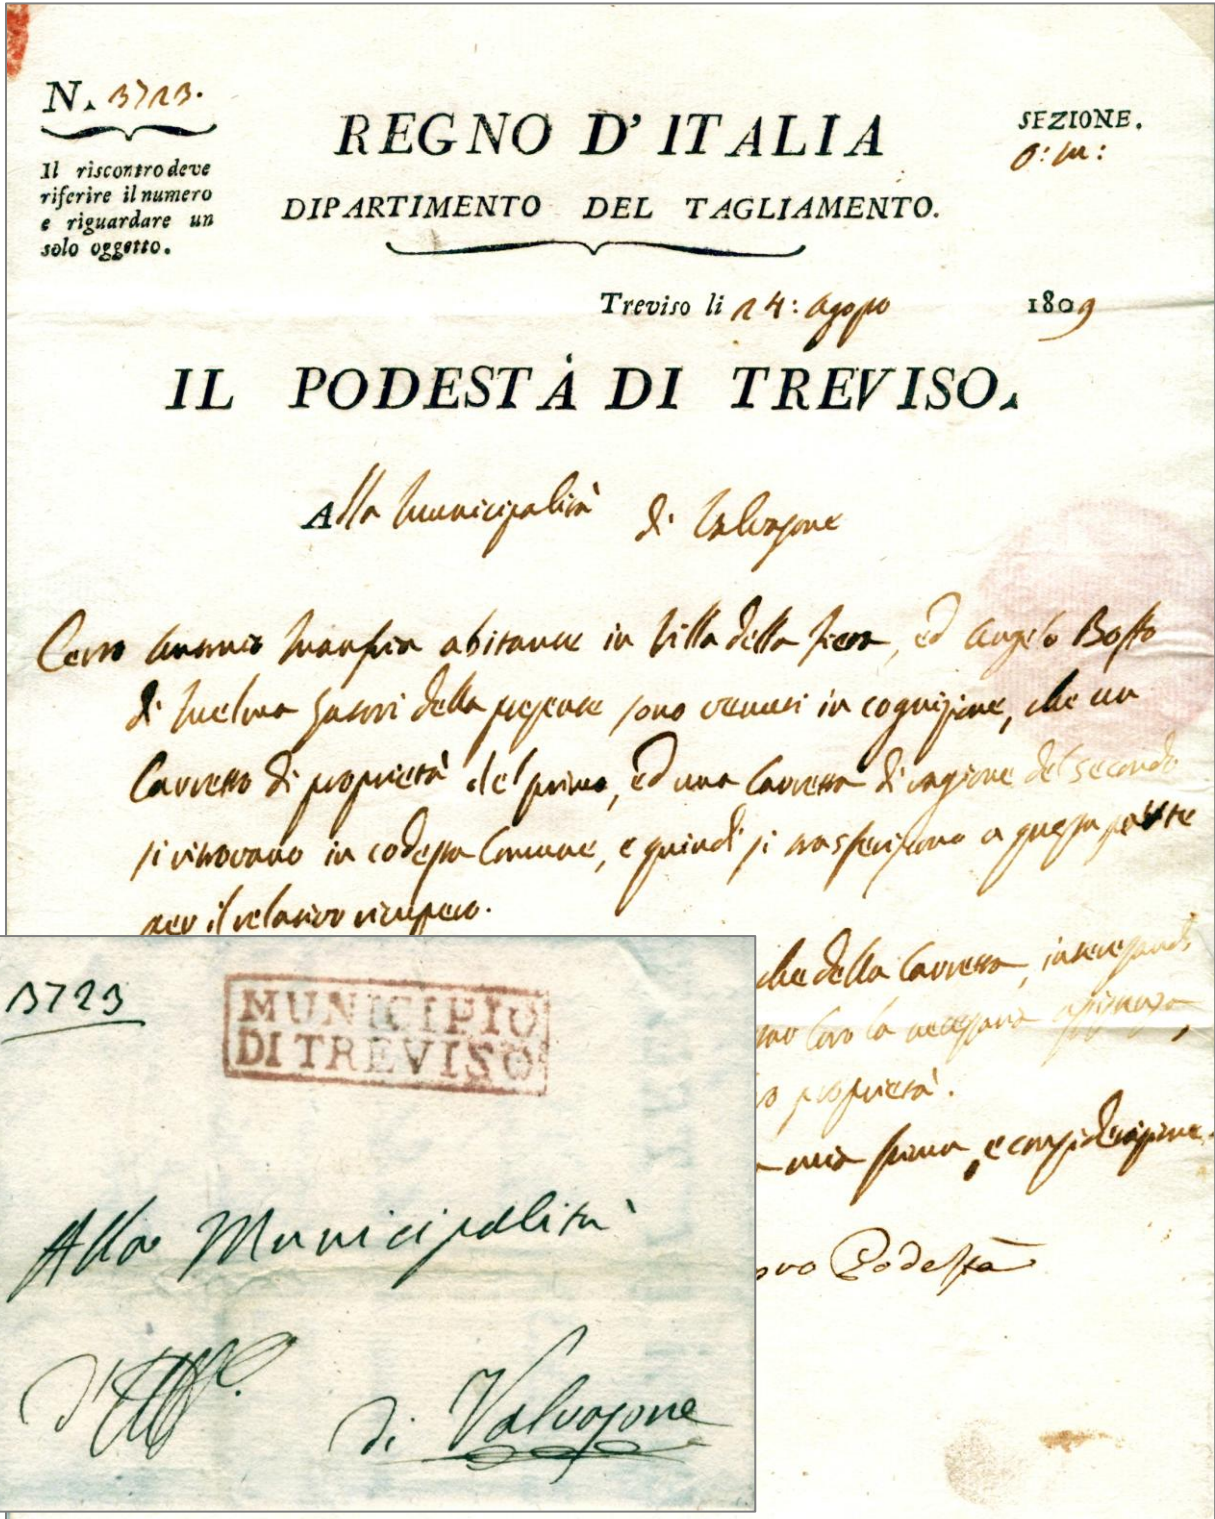 N. 3723.
Il riscontro deve
riferire il numero
e riguardare un
solo oggetto.
REGNO D' ITALIA
DIPARTIMENTO DEL TAGLIAMENTO.
SEZIONE.
Treviso li 24: Agosto 1809
IL PODESTÀ DI TREVISO.
Alla Municipalità di Valvasone
Certo Antonio abitante in Villa della Fiera, ed Angelo
di Melma della presente sono venuti in cognizione, che un
Carretto di proprietà del primo, ed una Carretta di ragione del secondo
si ritrovano in codesta Comune, e quindi si trasferiscono a questa parte
per il relativo ricupero.
che della Carretta,
loro la necessaria assistenza,
proprietà.
mia stima, e considerazione.
Podestà
3723
MUNICIPIO
DI TREVISO
Alla Municipalità
di Valvasone